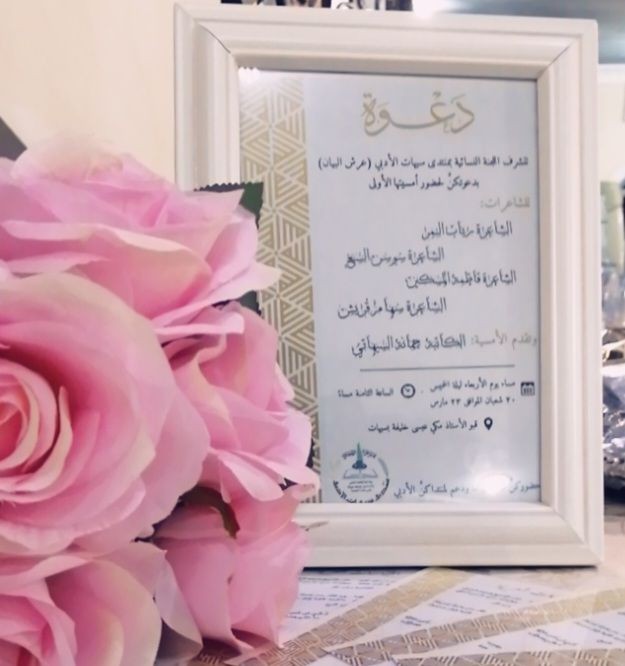 دَعْوَة
تتشرف اللجنة النسائية بمنتدى سيهات الأدبي (عرش البيان)
بدعوتكنَّ لحضور أمسيتها الأولى
للشاعرات:
الشاعرة رباب النمر
الشاعرة سوسن
الشاعرة فاطمة المسكين
الشاعرة سهام قريش
وتقدم الأمسية: الكاتبة جمانة السيهاتي
مساء يوم الأربعاء ليلة الخميس
الساعة الثامنة مساءً
٢٠ شعبان الموافق ٢٣ مارس
الأستاذ مكي عيسى خليفة بسيهات
ودعم لمنتداكنَّ الأدبي